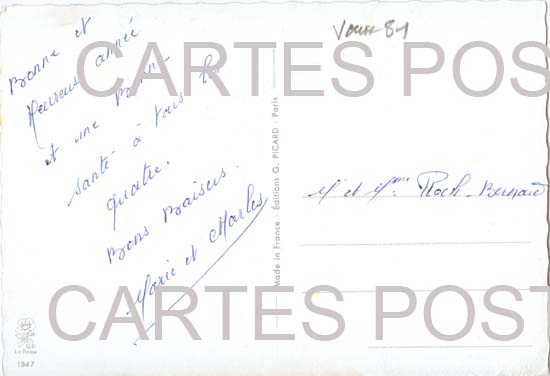 Bonne et
Heureuse année
et une Bonne
santé à vous les
quatre.
Bons Baisers.
Marie et Charles
84
CARTES POST
Made in France - Éditions G. PICARD - Paris
Mr et Mme Roch Bernard
CARTES POST
G.P.
La Rose
1847